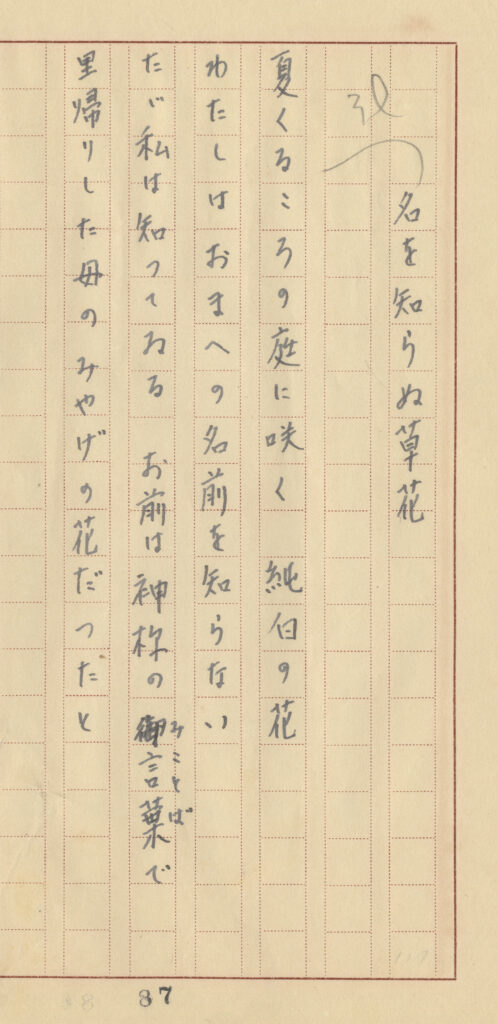 名を知らぬ草花
夏くるころの庭に咲く　純白の花
わたしはおまへの名前を知らない
たゞ私は知ってゐる　お前は神様の御言葉で
みことば
里帰りした母のみやげの花だつたと
87